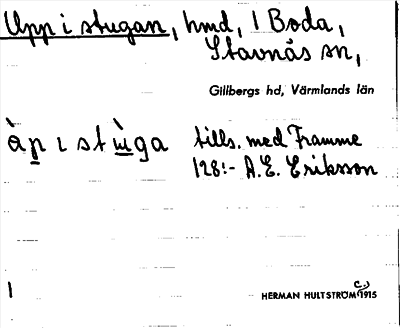 Upp i stugan, hmd, 1 Boda,
Stavnäs sn,
Gillbergs hd, Värmlands län
àp ı stɯ̀ga tills. med Framme
128:- A.E. Eriksson
1
HERMAN HULTSTRÖM C.) 1915